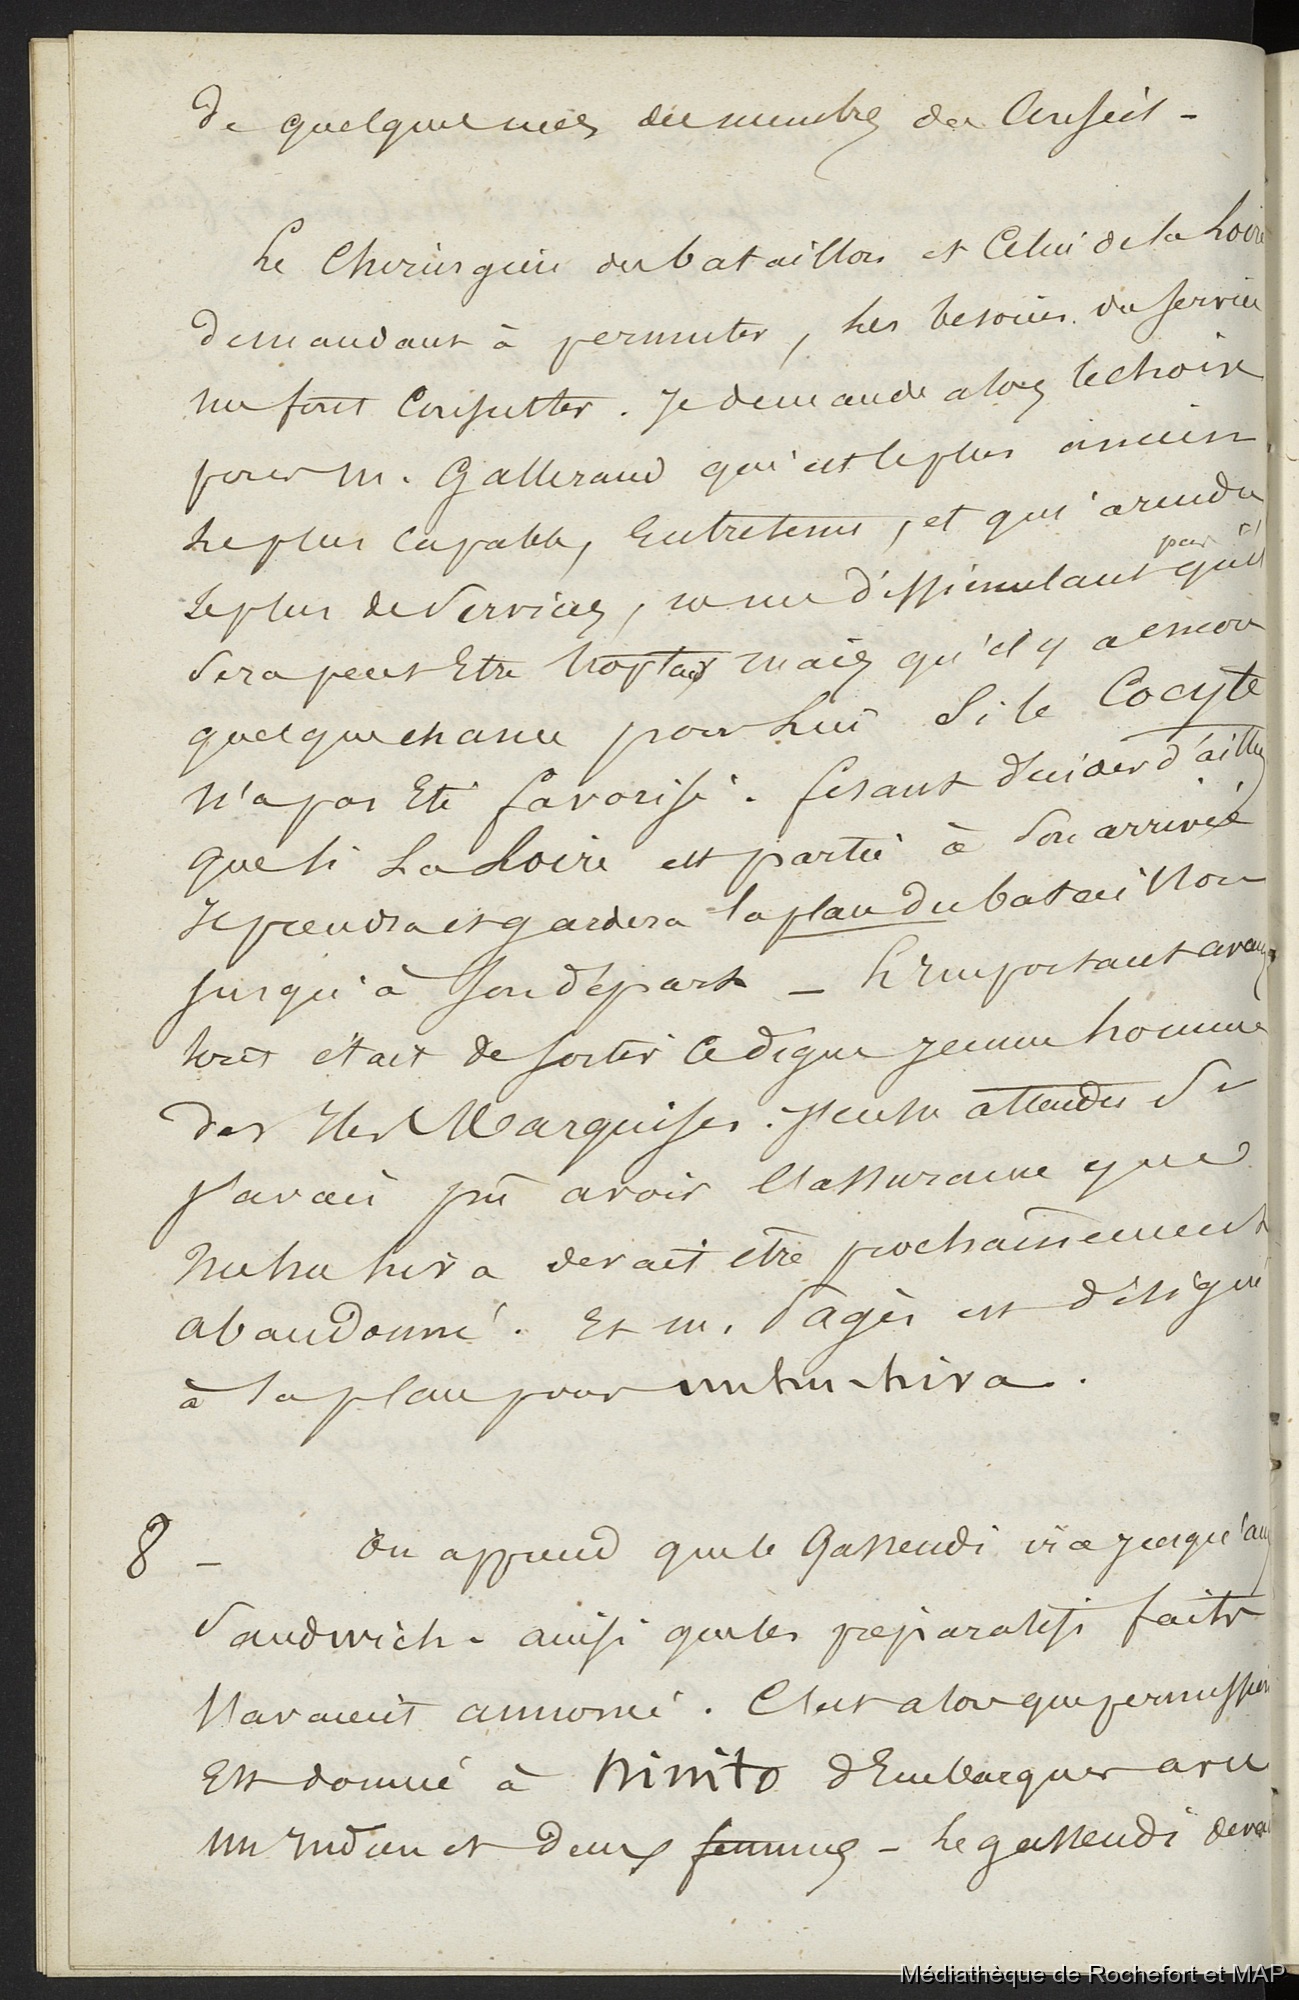 de quelques uns des membres du Conseil -
Le Chirurgien du bataillon et Celui de la Loire
demandant à permuter, les besoins du service
me font Consulter. Je demande alors le choix
pour M. Gallerand qui est le plus ancien
le plus Capable, Entretenu, et qui a rendu
le plus de Services, ne me dissimulant pas qu'il
Sera peut Etre trop tard mais qu'il y a encore
quelque chance pour Lui Si le Cocyte
n'a pas Eté favorisé. fesant décider d'ailleurs
que si La Loire est partie à Son arrivée
Il prendra et gardera la place du bataillon
jusqu'à Son départ - L'Important avant
tout était de sortir Ce digne jeune homme
des Iles Marquises. J'eusse attendu Si
J'avais pû avoir L'assurance que
Nuhu hiva devait être prochainement
abandonné. Et m. Pagès est désigné
à La place pour nuhu-hiva.
8 - On apprend que le Gassendi ira jusqu'aux
Sandwich - ainsi que les préparatifs faits
L'avaient annoncé. C'est alors que permission
Est donnée à Ninito d'Embarquer avec
un Indien et deux femmes - Le gassendi devait
Médiathèque de Rochefort et MAP